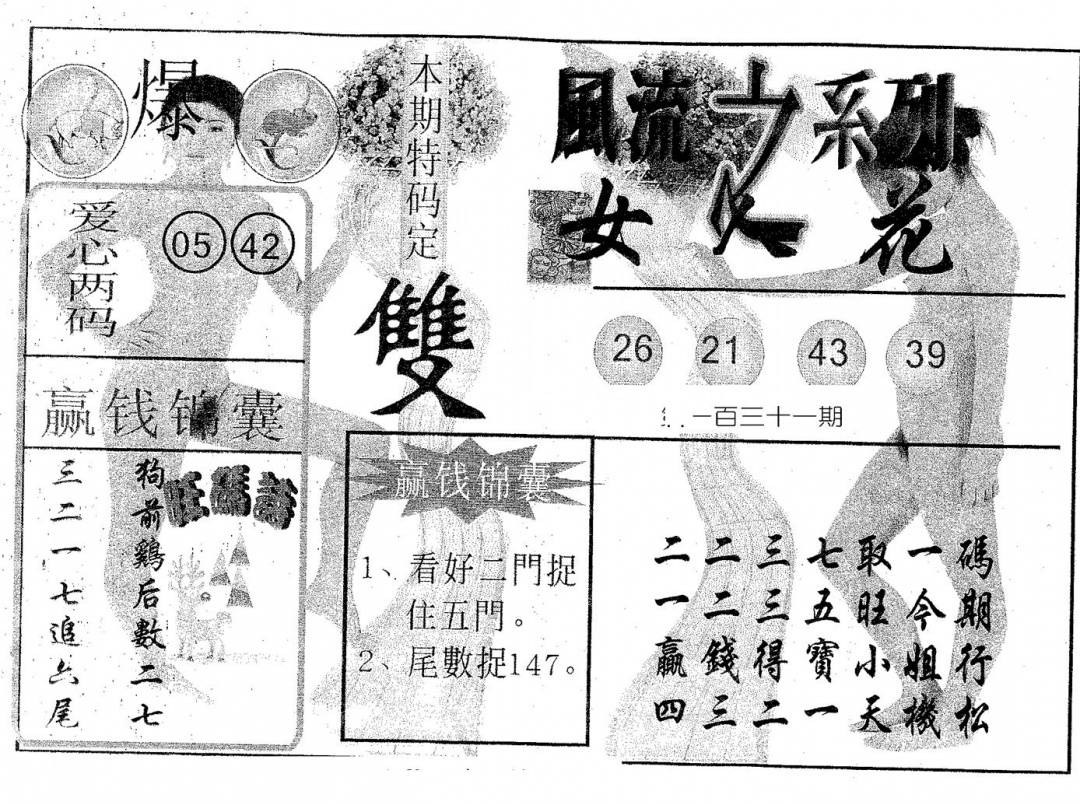 爆
本期特码定
雙
風流之系列
女人花
爱心两码
05 42
26 21 43 39
一百三十一期
赢钱锦囊
旺碼詩
狗前鷄后數二七
三二一七追六尾
赢钱锦囊
1、看好二門捉
住五門。
2、尾數捉147。
碼期行松
一今姐機
取旺小天
七五寶一
三三得二
二二錢三
二一贏四